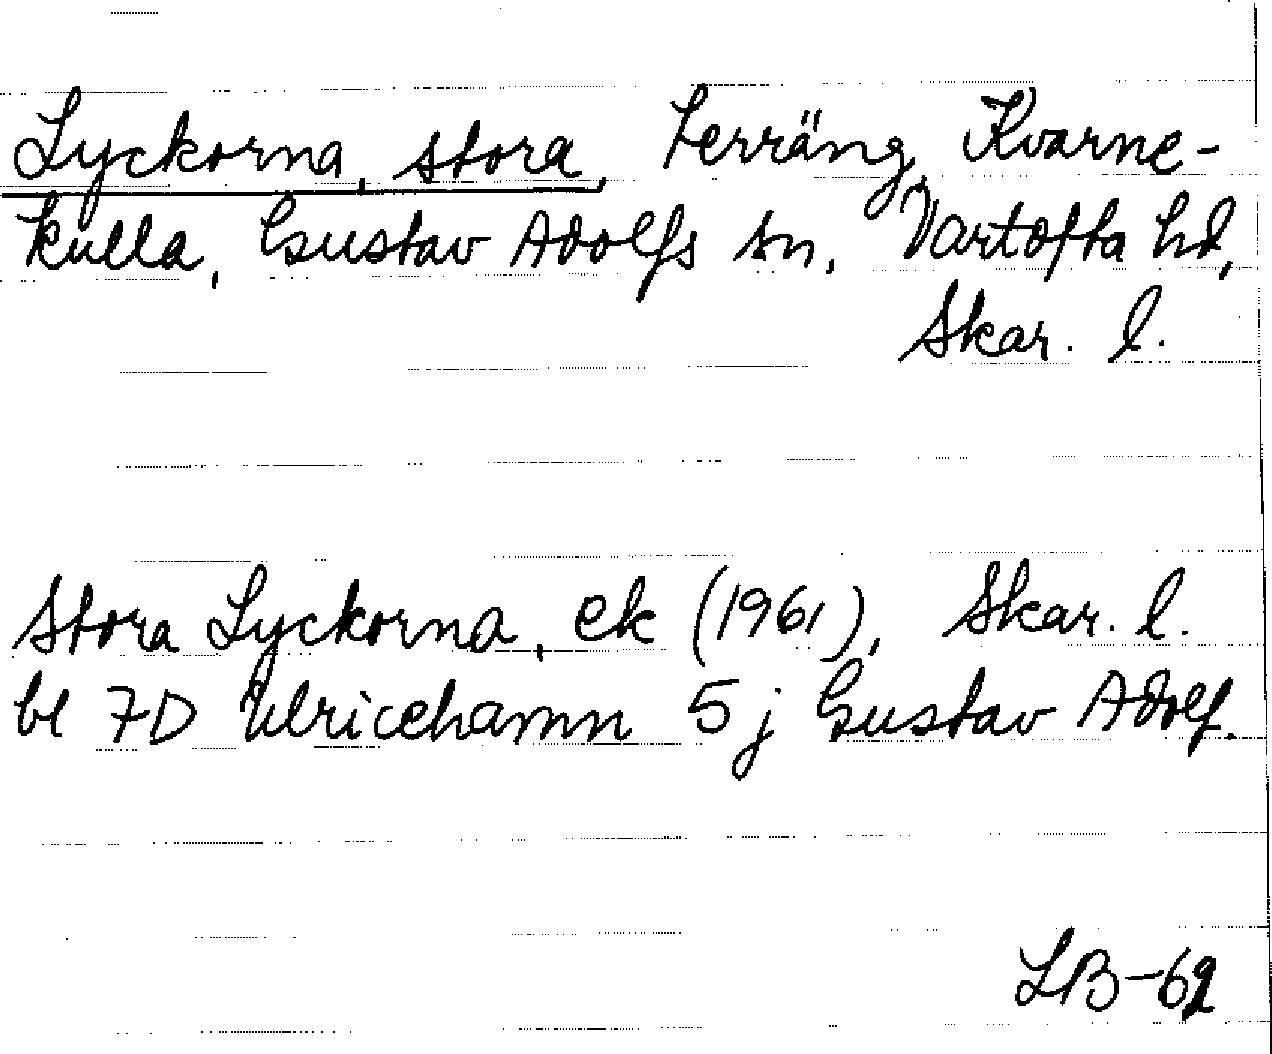 Lyckorna, stora, Terräng, Kvarne-
kulla, Gustav Adolfs sn, Vartofta hd,
Skar. l.
Stora Lyckorna, ek (1961), Skar. l.
bl 7D Ulricehamn 5 j Gustav Adolf.
LB-62